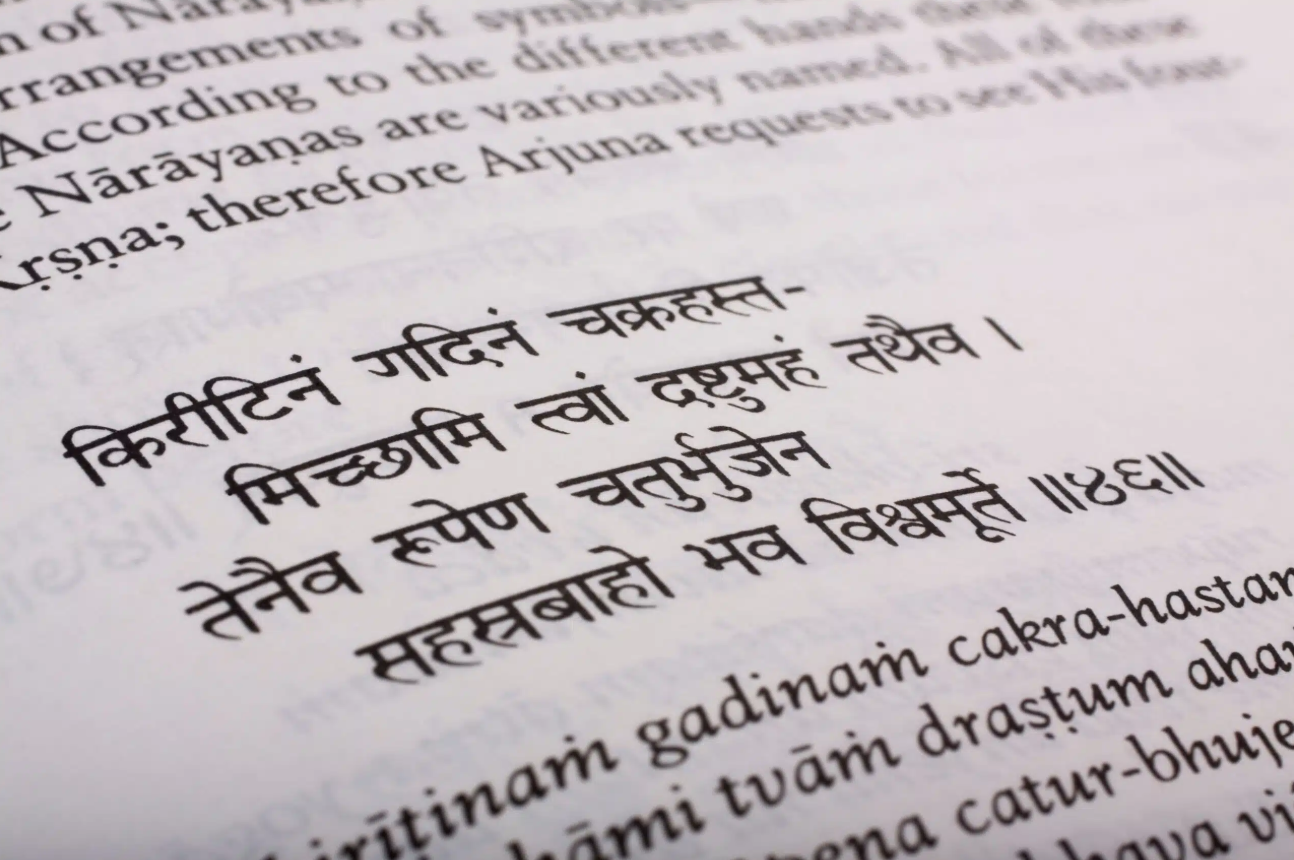 of Nārāyaṇa
arrangements of symbols
According to the different hands these
Nārāyaṇas are variously named. All of these
Kṛṣṇa; therefore Arjuna requests to see His four-
किरीटिनं गदिनं चक्रहस्त-
मिच्छामि त्वां द्रष्टुमहं तथैव ।
तेनैव रूपेण चतुर्भुजेन
सहस्रबाहो भव विश्वमूर्ते ॥४६॥
kirītinaṁ gadinaṁ cakra-hastam
icchāmi tvāṁ draṣṭum ahaṁ
rūpeṇa catur-bhujena
bhava